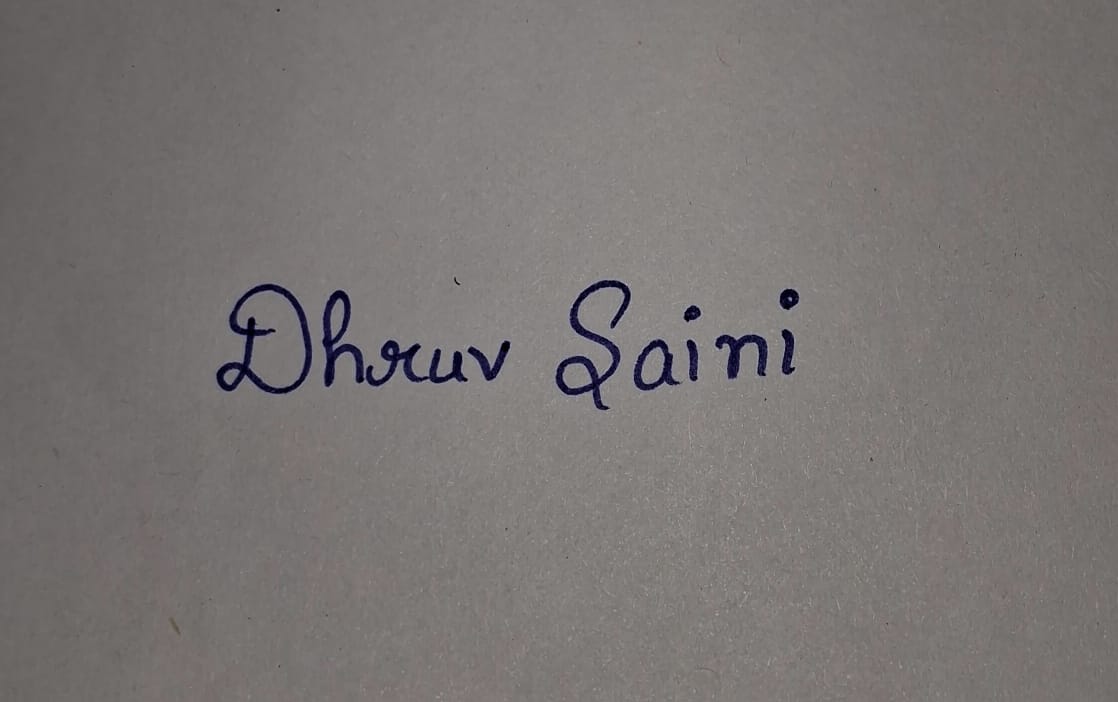 Dhruv Saini